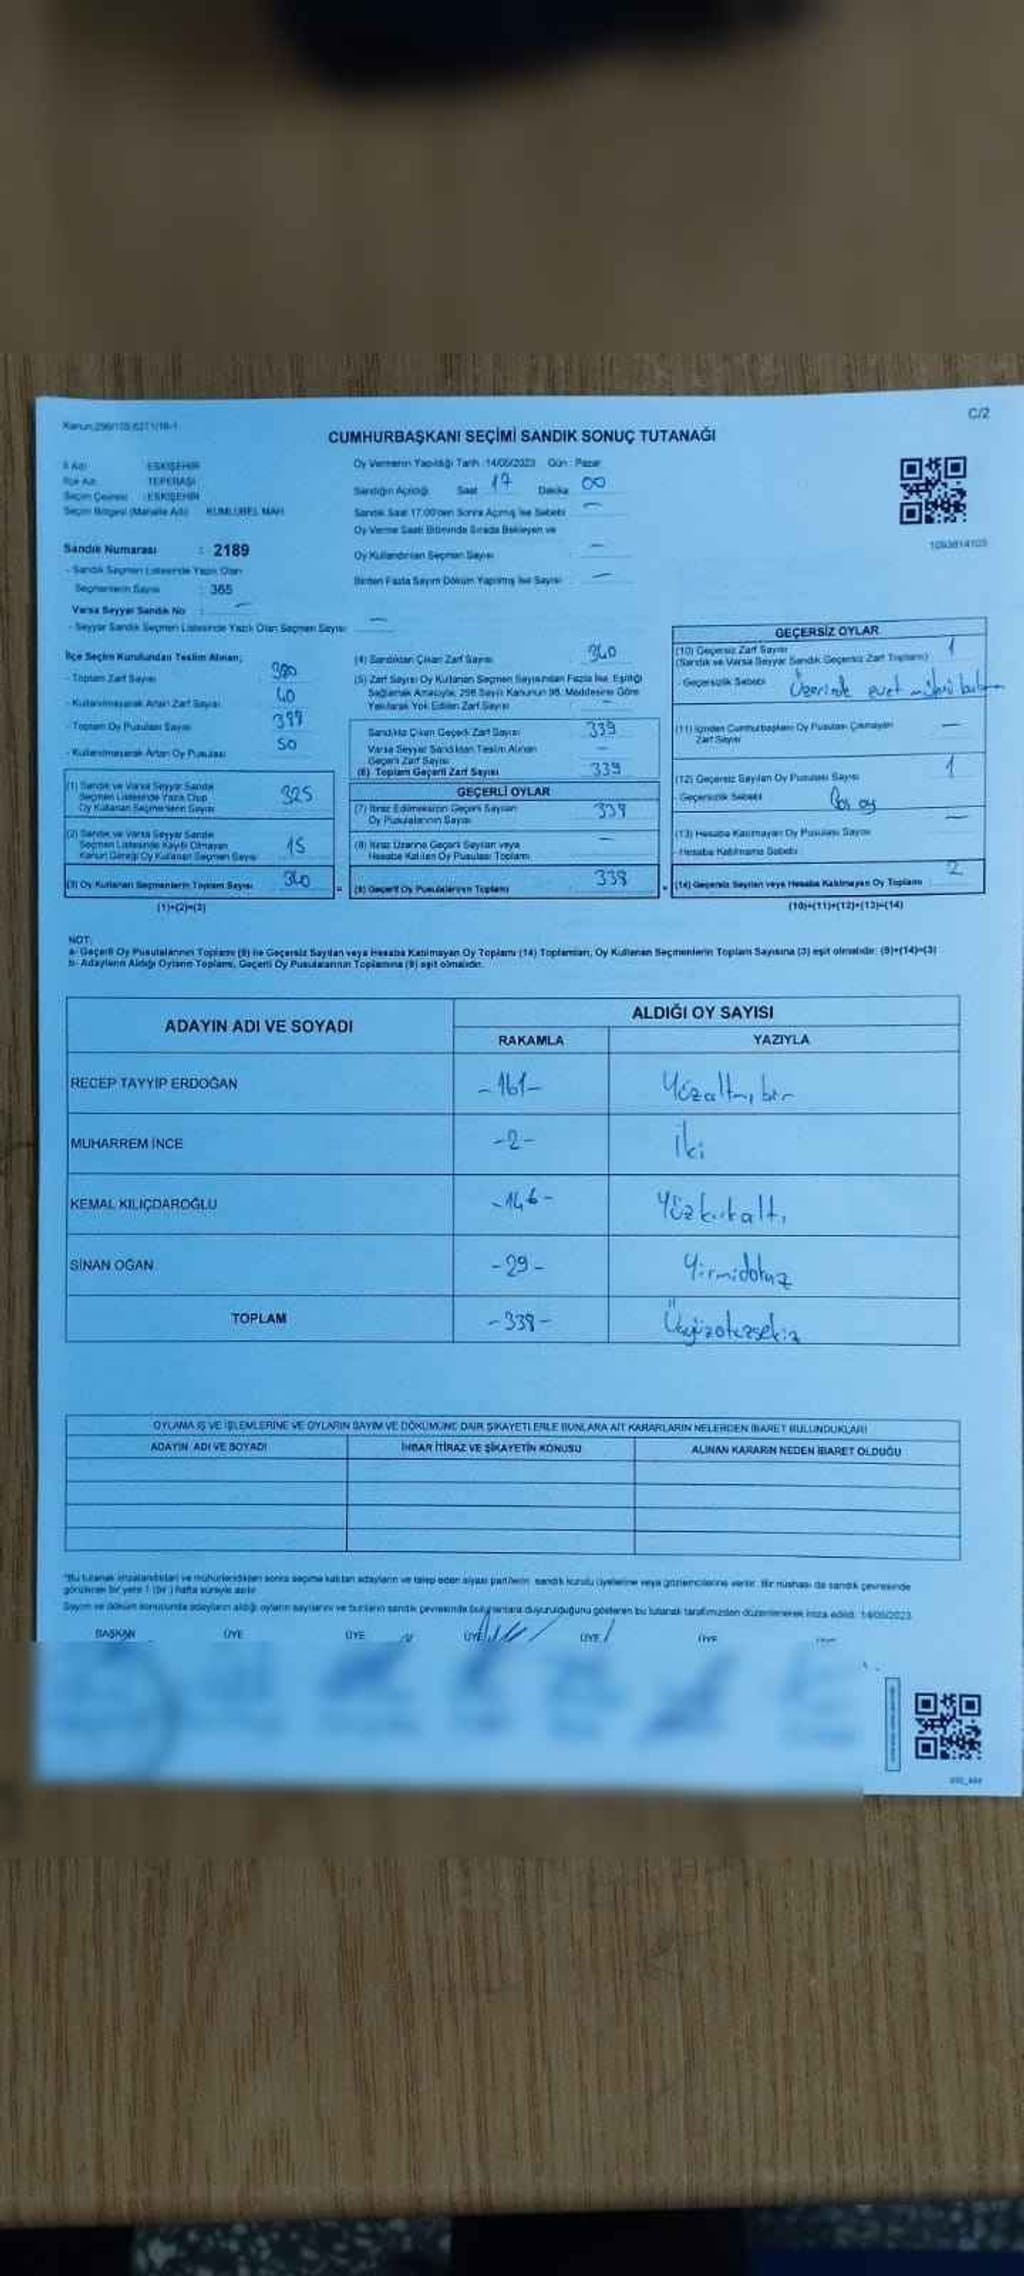 C/2
CUMHURBAŞKANI SEÇİMİ SANDIK SONUÇ TUTANAĞI
İl Adı : ESKİŞEHİR
İlçe Adı : TEPEBAŞI
Seçim Çevresi : ESKİŞEHİR
Seçim Bölgesi (Mahalle Adı) KUMLUBEL MAH
Sandık Numarası : 2189
- Sandık Seçmen Listesinde Yazılı Olan
Seçmenlerin Sayısı : 365
Varsa Seyyar Sandık No : —
- Seyyar Sandık Seçmen Listesinde Yazılı Olan Seçmen Sayısı —
Oy Vermenin Yapıldığı Tarih : 14/05/2023 Gün : Pazar
Sandığın Açıldığı Saat 17 Dakika 00
Sandık Saat 17.00'den Sonra Açılmış İse Sebebi —
Oy Verme Saati Bitiminde Sırada Bekleyen ve
Oy Kullandırılan Seçmen Sayısı : —
Birden Fazla Sayım Döküm Yapılmış İse Sayısı : —
İlçe Seçim Kurulundan Teslim Alınan;
- Toplam Zarf Sayısı 380
- Kullanılmayarak Artan Zarf Sayısı 40
- Toplam Oy Pusulası Sayısı
- Kullanılmayarak Artan Oy Pusulası 50
(1) Sandık ve Varsa Seyyar Sandık
Seçmen Listesinde Yazılı Olup
Oy Kullanan Seçmenlerin Sayısı 325
(2) Sandık ve Varsa Seyyar Sandık
Seçmen Listesinde Kayıtlı Olmayan
Kanun Gereği Oy Kullanan Seçmen Sayısı 15
(3) Oy Kullanan Seçmenlerin Toplam Sayısı 340
(1)+(2)=(3)
(4) Sandıktan Çıkan Zarf Sayısı 340
(5) Zarf Sayısı Oy Kullanan Seçmen Sayısından Fazla İse, Eşitliği
Sağlamak Amacıyla, 298 Sayılı Kanunun 98. Maddesine Göre
Yakılarak Yok Edilen Zarf Sayısı —
Sandıkta Çıkan Geçerli Zarf Sayısı 339
Varsa Seyyar Sandıktan Teslim Alınan
Geçerli Zarf Sayısı —
(6) Toplam Geçerli Zarf Sayısı 339
GEÇERLİ OYLAR
(7) İtiraz Edilmeksizin Geçerli Sayılan
Oy Pusulalarının Sayısı 338
(8) İtiraz Üzerine Geçerli Sayılan veya
Hesaba Katılan Oy Pusulası Toplamı —
(9) Geçerli Oy Pusulalarının Toplamı 338
GEÇERSİZ OYLAR
(10) Geçersiz Zarf Sayısı 1
(Sandık ve Varsa Seyyar Sandık Geçersiz Zarf Toplamı)
- Geçersizlik Sebebi Üzerinde evet mührü
(11) İçinden Cumhurbaşkanı Oy Pusulası Çıkmayan
Zarf Sayısı —
(12) Geçersiz Sayılan Oy Pusulası Sayısı 1
- Geçersizlik Sebebi Boş oy
(13) Hesaba Katılmayan Oy Pusulası Sayısı —
- Hesaba Katılmama Sebebi
(14) Geçersiz Sayılan veya Hesaba Katılmayan Oy Toplamı 2
(10)+(11)+(12)+(13)=(14)
NOT:
a- Geçerli Oy Pusulalarının Toplamı (9) ile Geçersiz Sayılan veya Hesaba Katılmayan Oy Toplamı (14) Toplamları, Oy Kullanan Seçmenlerin Toplam Sayısına (3) eşit olmalıdır. (9)+(14)=(3)
b- Adayların Aldığı Oyların Toplamı, Geçerli Oy Pusulalarının Toplamına (9) eşit olmalıdır.
ADAYIN ADI VE SOYADI
ALDIĞI OY SAYISI
RAKAMLA YAZIYLA
RECEP TAYYİP ERDOĞAN -161- Yüzaltmışbir
MUHARREM İNCE -2- İki
KEMAL KILIÇDAROĞLU -146- Yüzkırkaltı
SİNAN OĞAN -29- Yirmidokuz
TOPLAM -338- Üçyüzotuzsekiz
OYLAMA İŞ VE İŞLEMLERİNE VE OYLARIN SAYIM VE DÖKÜMÜNE DAİR ŞİKAYETLERLE BUNLARA AİT KARARLARIN NELERDEN İBARET BULUNDUKLARI
ADAYIN ADI VE SOYADI İHBAR İTİRAZ VE ŞİKAYETİN KONUSU ALINAN KARARIN NEDEN İBARET OLDUĞU
"Bu tutanak imzalandıktan ve mühürlendikten sonra seçime katılan adayların ve talep eden siyasi partilerin sandık kurulu üyelerine veya gözlemcilerine verilir. Bir nüshası da sandık çevresinde
görülecek bir yere 1 (bir) hafta süreyle asılır.
Sayım ve döküm sonucunda adayların aldığı oyların sayılarını ve bunların sandık çevresinde bulunanlara duyurulduğunu gösteren bu tutanak tarafımızdan düzenlenerek imza edildi. 14/05/2023
BAŞKAN ÜYE ÜYE ÜYE ÜYE ÜYE